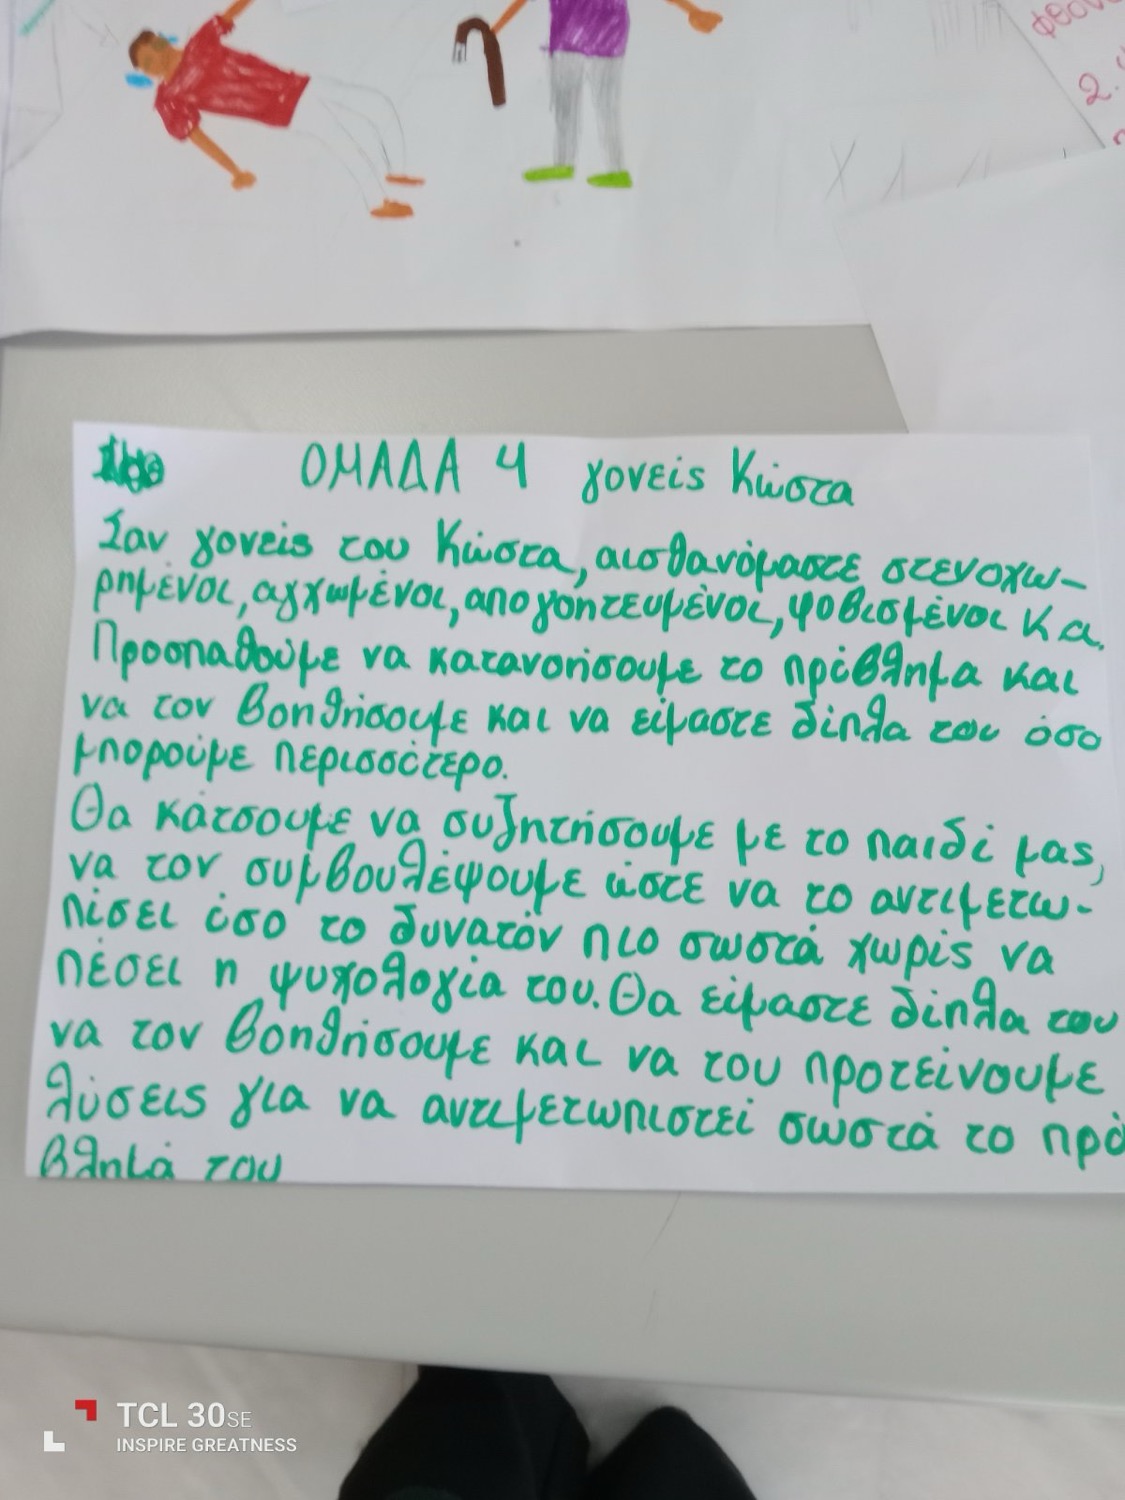 φθον
2.
ΟΜΑΔΑ 4 γονείς Κώστα
Σαν γονείς του Κώστα, αισθανόμαστε στενοχω-
ρημένοι, αγχωμένοι, απογοητευμένοι, φοβισμένοι κ α.
Προσπαθούμε να κατανοήσουμε το πρόβλημα και
να τον βοηθήσουμε και να είμαστε δίπλα του όσο
μπορούμε περισσότερο.
Θα κάτσουμε να συζητήσουμε με το παιδί μας,
να τον συμβουλέψουμε ώστε να το αντιμετω-
πίσει όσο το δυνατόν πιο σωστά χωρίς να
πέσει η ψυχολογία του. Θα είμαστε δίπλα του
να τον βοηθήσουμε και να του προτείνουμε
λύσεις για να αντιμετωπιστεί σωστά το πρό
βλημά του
TCL 30 SE
INSPIRE GREATNESS